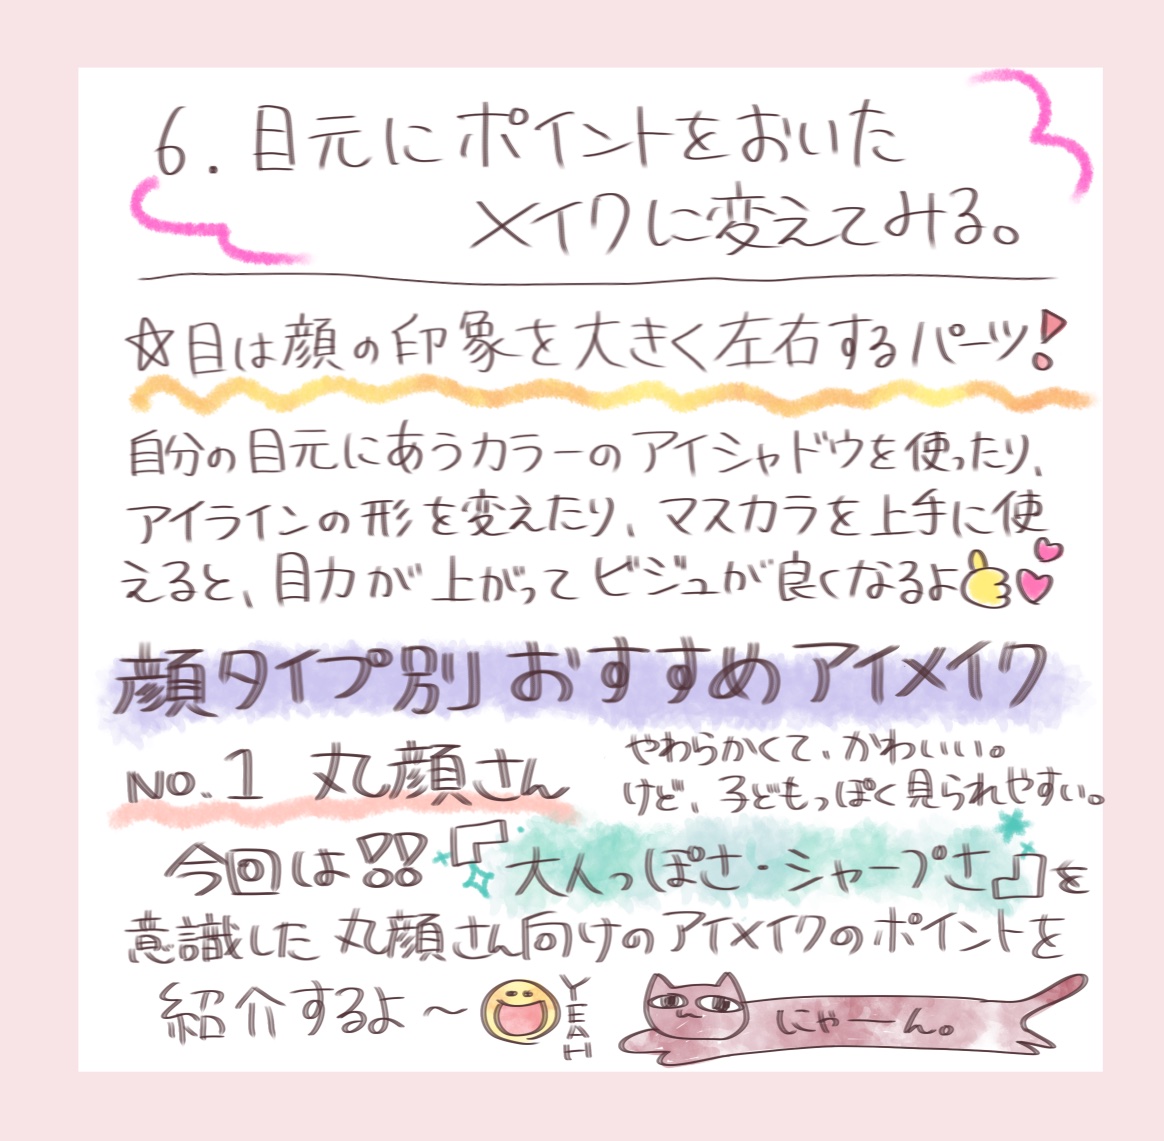 6. 目元にポイントをおいた
メイクに変えてみる。
☆目は顔の印象を大きく左右するパーツ!
自分の目元にあうカラーのアイシャドウを使ったり、
アイラインの形を変えたり、マスカラを上手に使
えると、目力が上がってビジュが良くなるよ
顔タイプ別おすすめアイメイク
NO.1 丸顔さん
やわらかくて、かわいい。
けど、子どもっぽく見られやすい。
今回は!!『大人っぽさ・シャープさ』を
意識した丸顔さん向けのアイメイクのポイントを
紹介するよ〜
YEAH
にゃーん。